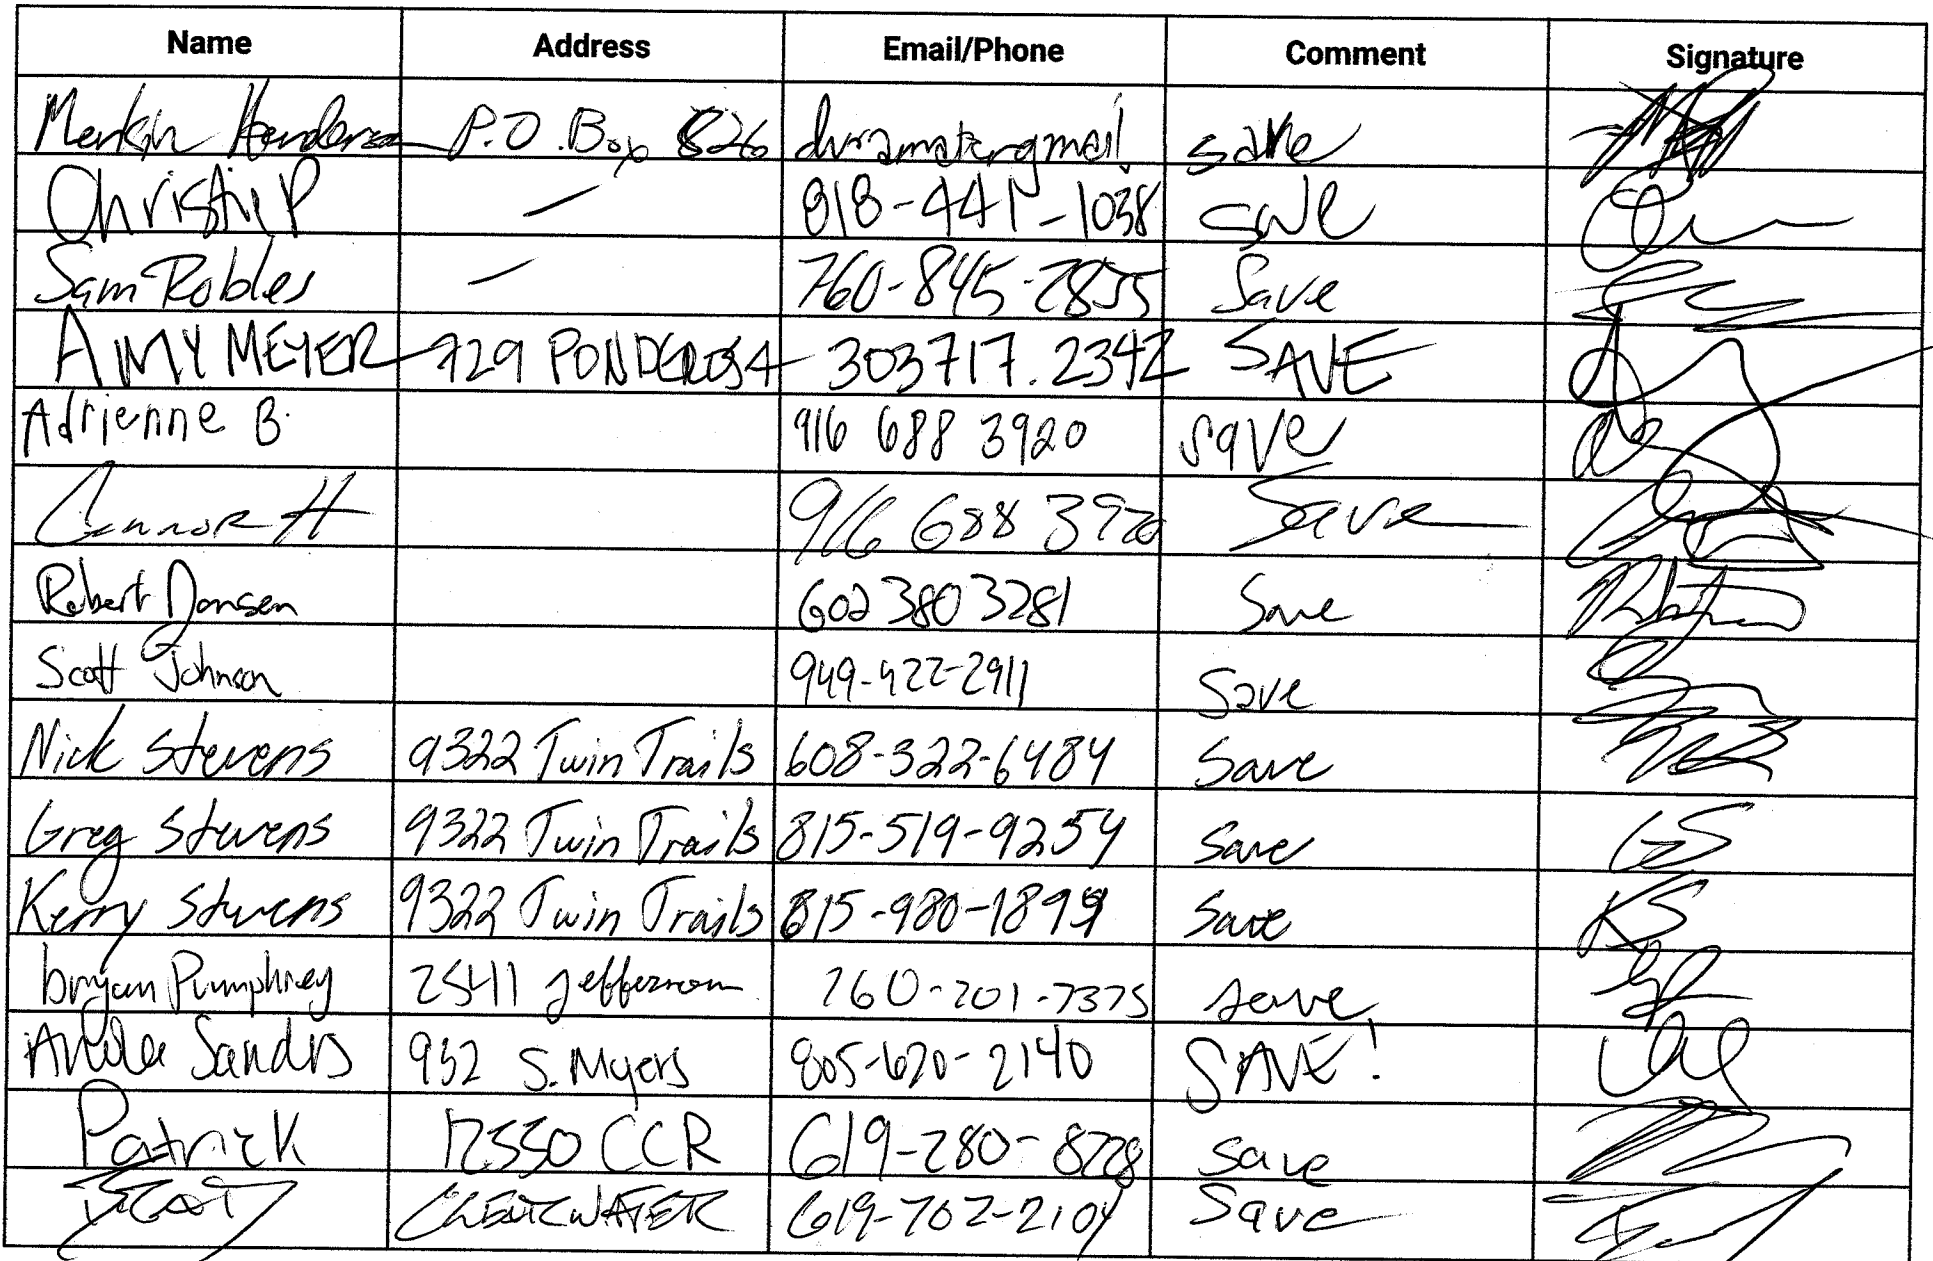 Name Address Email/Phone Comment Signature
Henderson P.O. Box 826 save
Christie P — 818-441-1038 save
Sam Robles — 760-845-2855 Save
AMY MEYER 729 PONDEROSA 303717.2342 SAVE
Adrienne B. 916 688 3920 save
Connor H 916 688 3920 Save
Robert Jansen 602 380 3281 Save
Scott Johnson 949-422-2911 Save
Nick Stevens 9322 Twin Trails 608-322-6484 Save
Greg Stevens 9322 Twin Trails 815-519-9254 Save GS
Kerry Stevens 9322 Twin Trails 815-980-1899 Save KS
bryan Pumphrey 2541 Jefferson 760-201-7375 save
Sanders 932 S. Myers 805-620-2140 SAVE!
Patrick 12550 CCR 619-280-8228 save
CLEARWATER 619-702-2104 Save